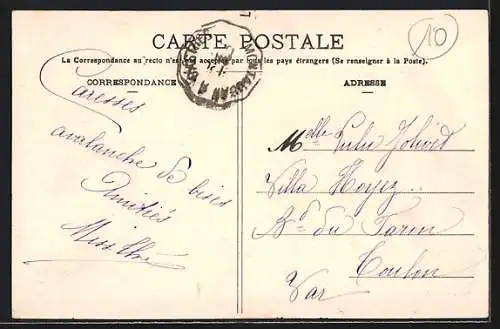 CARTE POSTALE
10
La Correspondance au recto n'est pas acceptée par tous les pays étrangers (Se renseigner à la Poste).
CORRESPONDANCE
ADRESSE
Caresses
avalanche de bises
Amitiés
Miss
Melle Lulu Jolivet
Villa Noyez
Bd du Tarin
Toulon
Var
MONTAUBAN A